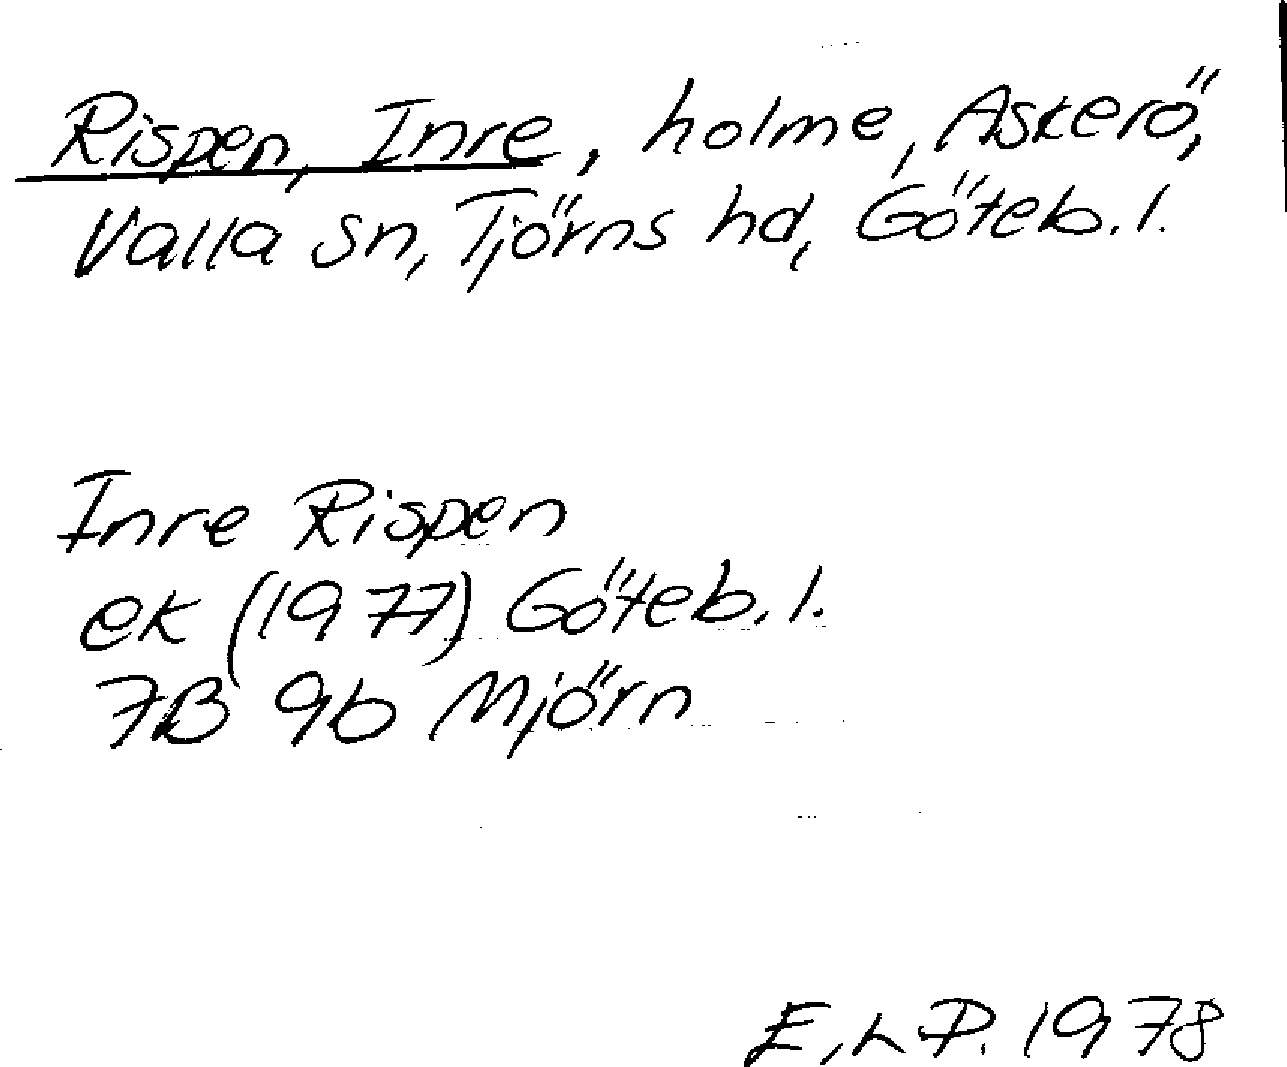 Rispen, Inre, holme, Askerö,
Valla sn, Tjörns hd, Göteb. l.
Inre Rispen
ek (1977) Göteb. l.
7B 9b Mjörn
E.LP. 1978